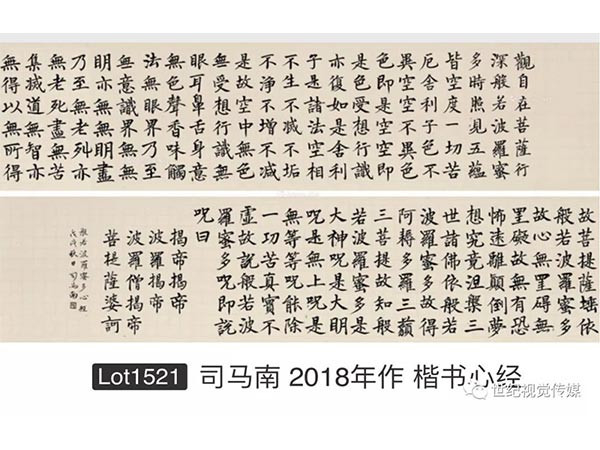 觀自在菩薩行
深般若波羅蜜
多時照見五蘊
皆空度一切苦
厄舍利子色不
異空空不異色
色即是空空即
是色受想行識
亦復如是舍利
子是諸法空相
不生不滅不垢
不淨不增不減
是故空中無色
無受想行識無
眼耳鼻舌身意
無色聲香味觸
法無眼界乃至
無意識界無無
明亦無無明盡
乃至無老死亦
無老死盡無苦
集滅道無智亦
無得以無所得
故菩提薩埵依
般若波羅蜜多
故心無罣礙無
罣礙故無有恐
怖遠離顛倒夢
想究竟涅槃三
世諸佛依般若
波羅蜜多故得
阿耨多羅三藐
三菩提故知般
若波羅蜜多是
大神呪是大明
呪是無上呪是
無等等呪能除
一切苦真實不
虛故說般若波
羅蜜多呪即說
呪曰
揭帝揭帝
波羅揭帝
波羅僧揭帝
菩提薩婆訶
般若波羅蜜多心經
戊戌秋日司馬南
Lot1521 司马南 2018年作 楷书心经
世纪视觉传媒